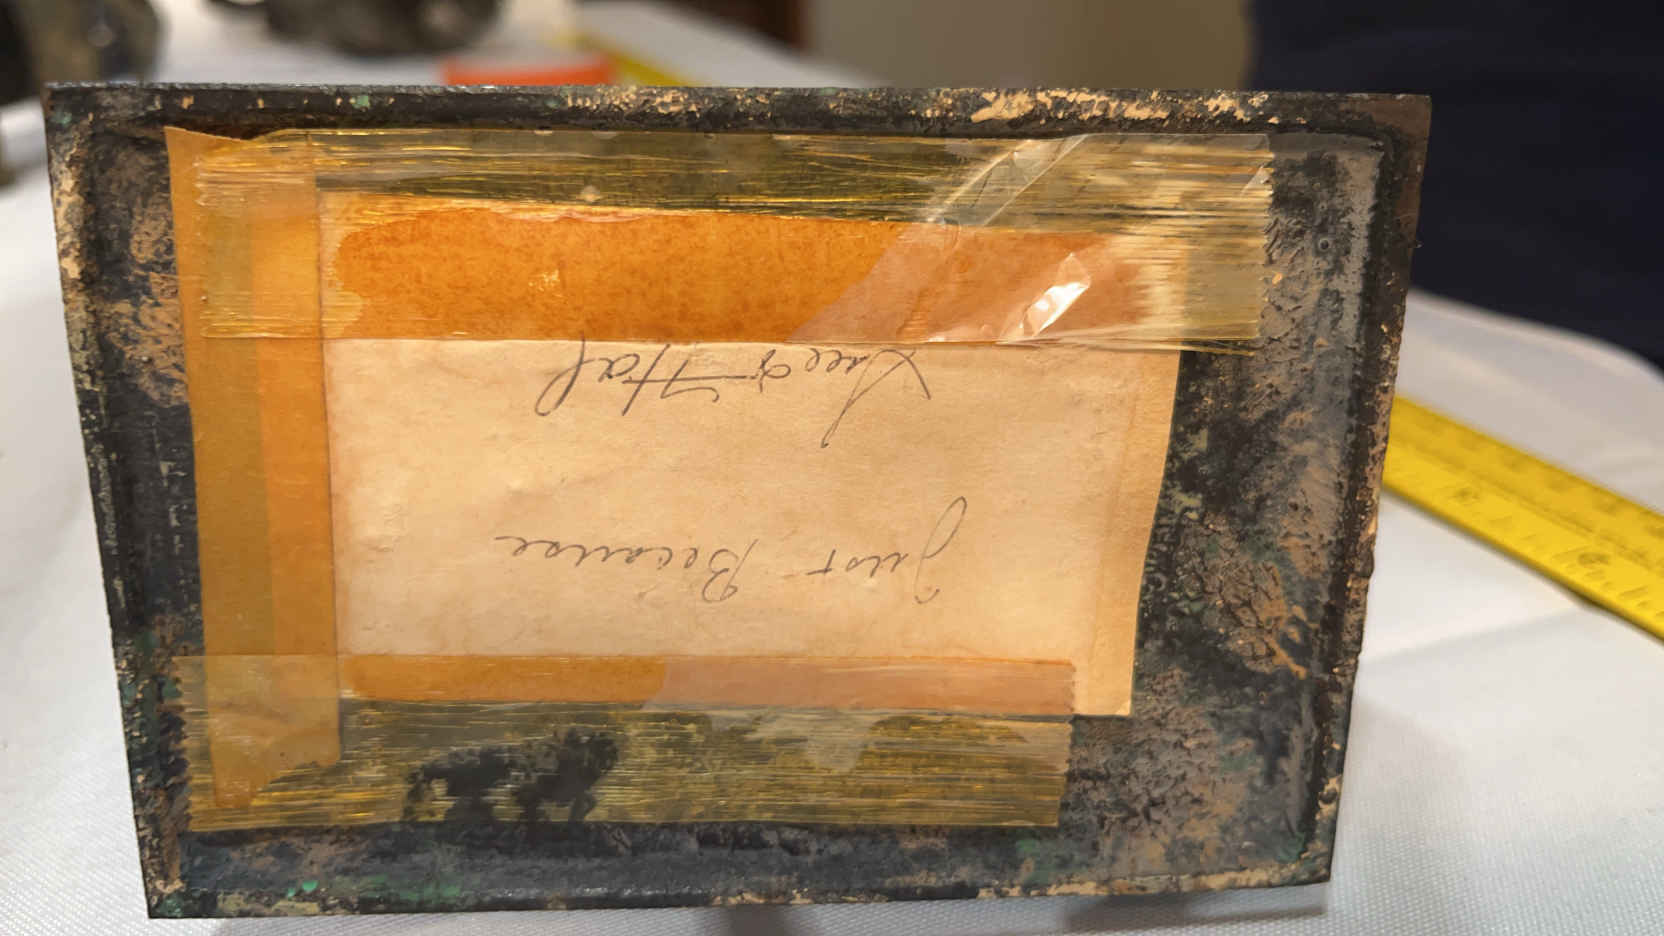 Just Because
& Hal